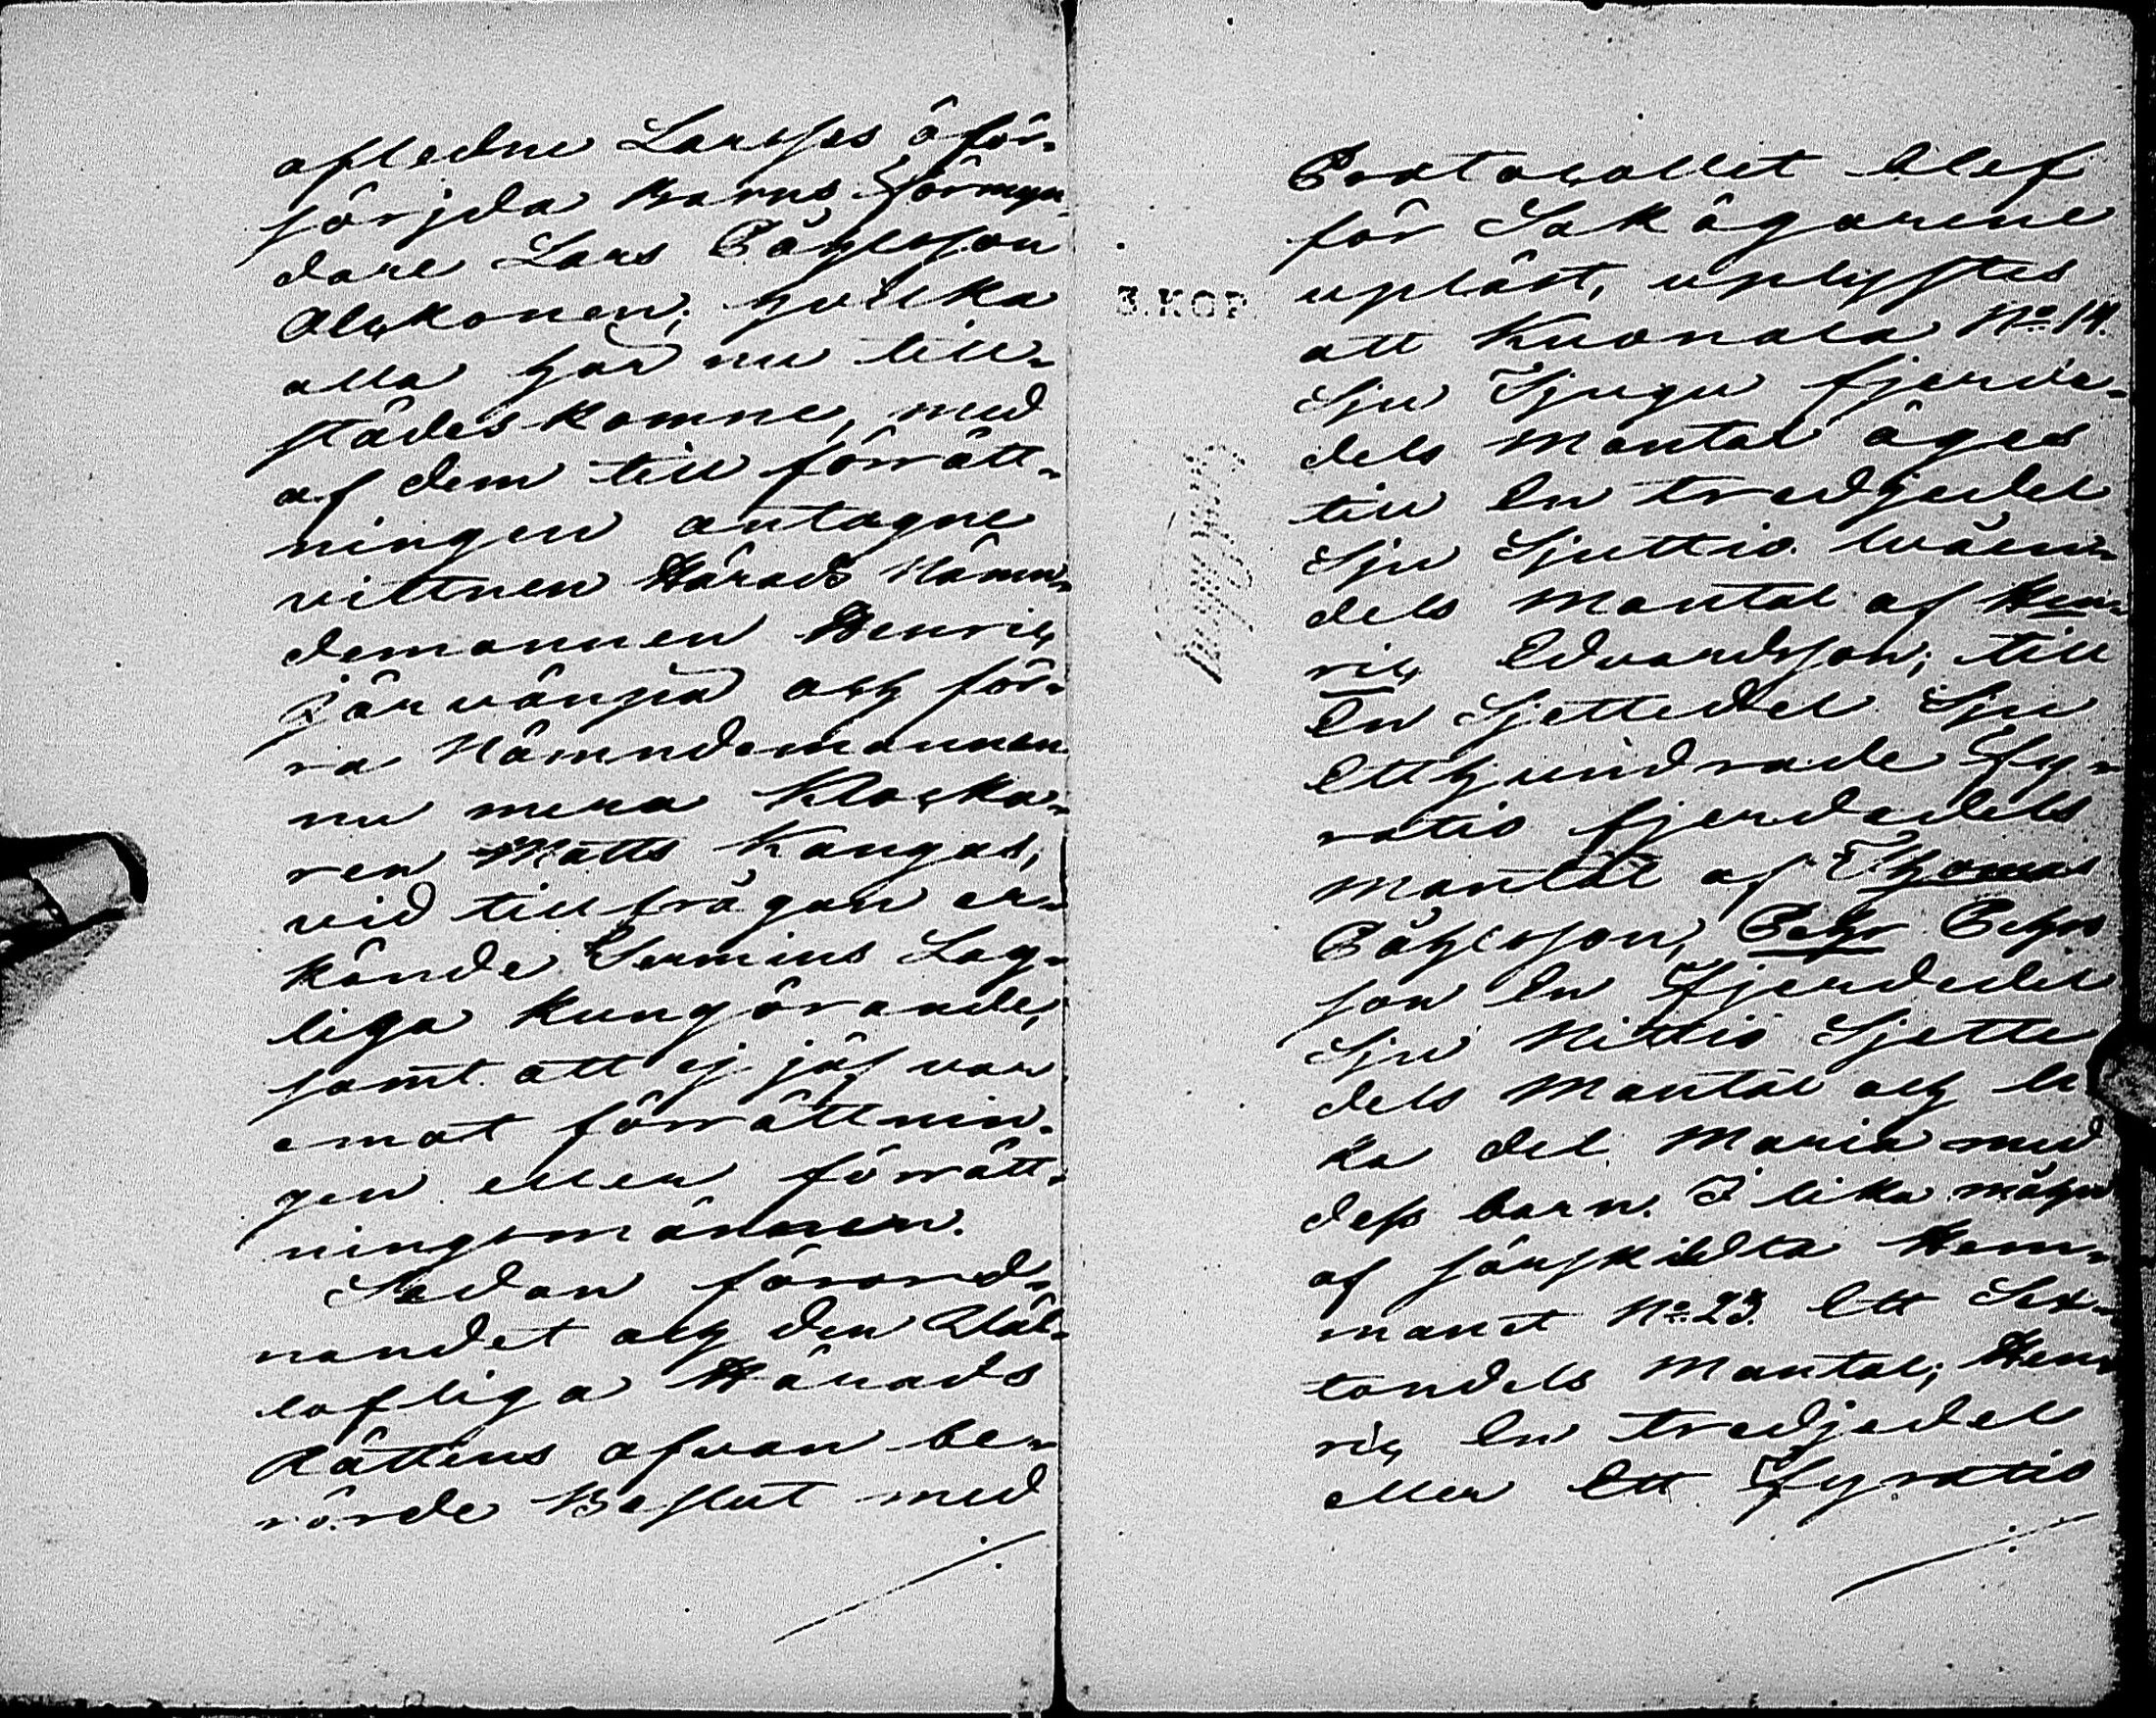 afledne Larsses oför-
sörjda Barns Förmyn-
dare Lars Påhlsson
Alckonen; hvilka
alla här nu till-
städeskomne, med
af dem till förrätt-
ningen antagne
vittnen Härads Nämn-
demannen Henric
Järvänpä och för-
ra Nämndemannen
nu mera Klocka-
ren Matts Kangas,
vid tillfrågan er-
kände Termins Lag-
liga kungörande,
samt att ej jäf var
emot förrättnin-
gen eller förrätt-
ningsmännen.
Sedan förord-
nandet och den Wäl-
lofliga Härads
Rättens ofvan be-
rörde Beslut med
Protocollet blef
för Sakägarene
3.KOP.
upläst, uplystes
att Kuonala No 14.
Sju Tjugu fjerde-
dels Mantal äges
till En tredjedel
Sju Sjuttio twåen-
dels Mantal af Hen-
ric Edvardsson; till
En Sjettedel Sju
Etthundrade Fy-
ratio fjerdedels
Mantal af Thomas
Påhlsson, Pehr Pehrs
son En Fjerdedel
Sju Nittio Sjette
dels Mantal och li
ka del Maria med
dess barn. I lika mågn
af särskildta Hem-
manet No 23. Ett Sex-
tondels Mantal; Hen-
ric En tredjedel
eller Ett Fyratio